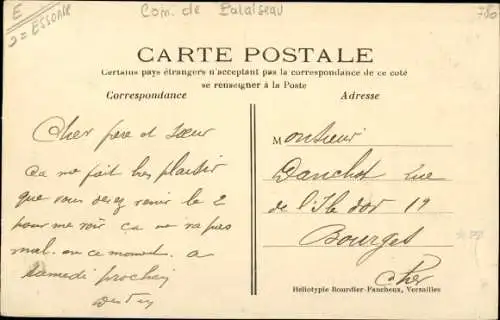 E
Com. de Palaiseau
780
= ESSONNE
CARTE POSTALE
Certains pays étrangers n'acceptent pas la correspondance de ce coté
se renseigner à la Poste
Correspondance
Adresse
Cher frère et Sœur
Ca me fait très plaisir
que vous venir le 2
pour me voir ca ne va pas
mal en ce moment. a
samedi prochain
Monsieur
Danchot rue
de l'Ile d'or 19
Bourges
Cher
Héliotypie Bourdier-Faucheux, Versailles